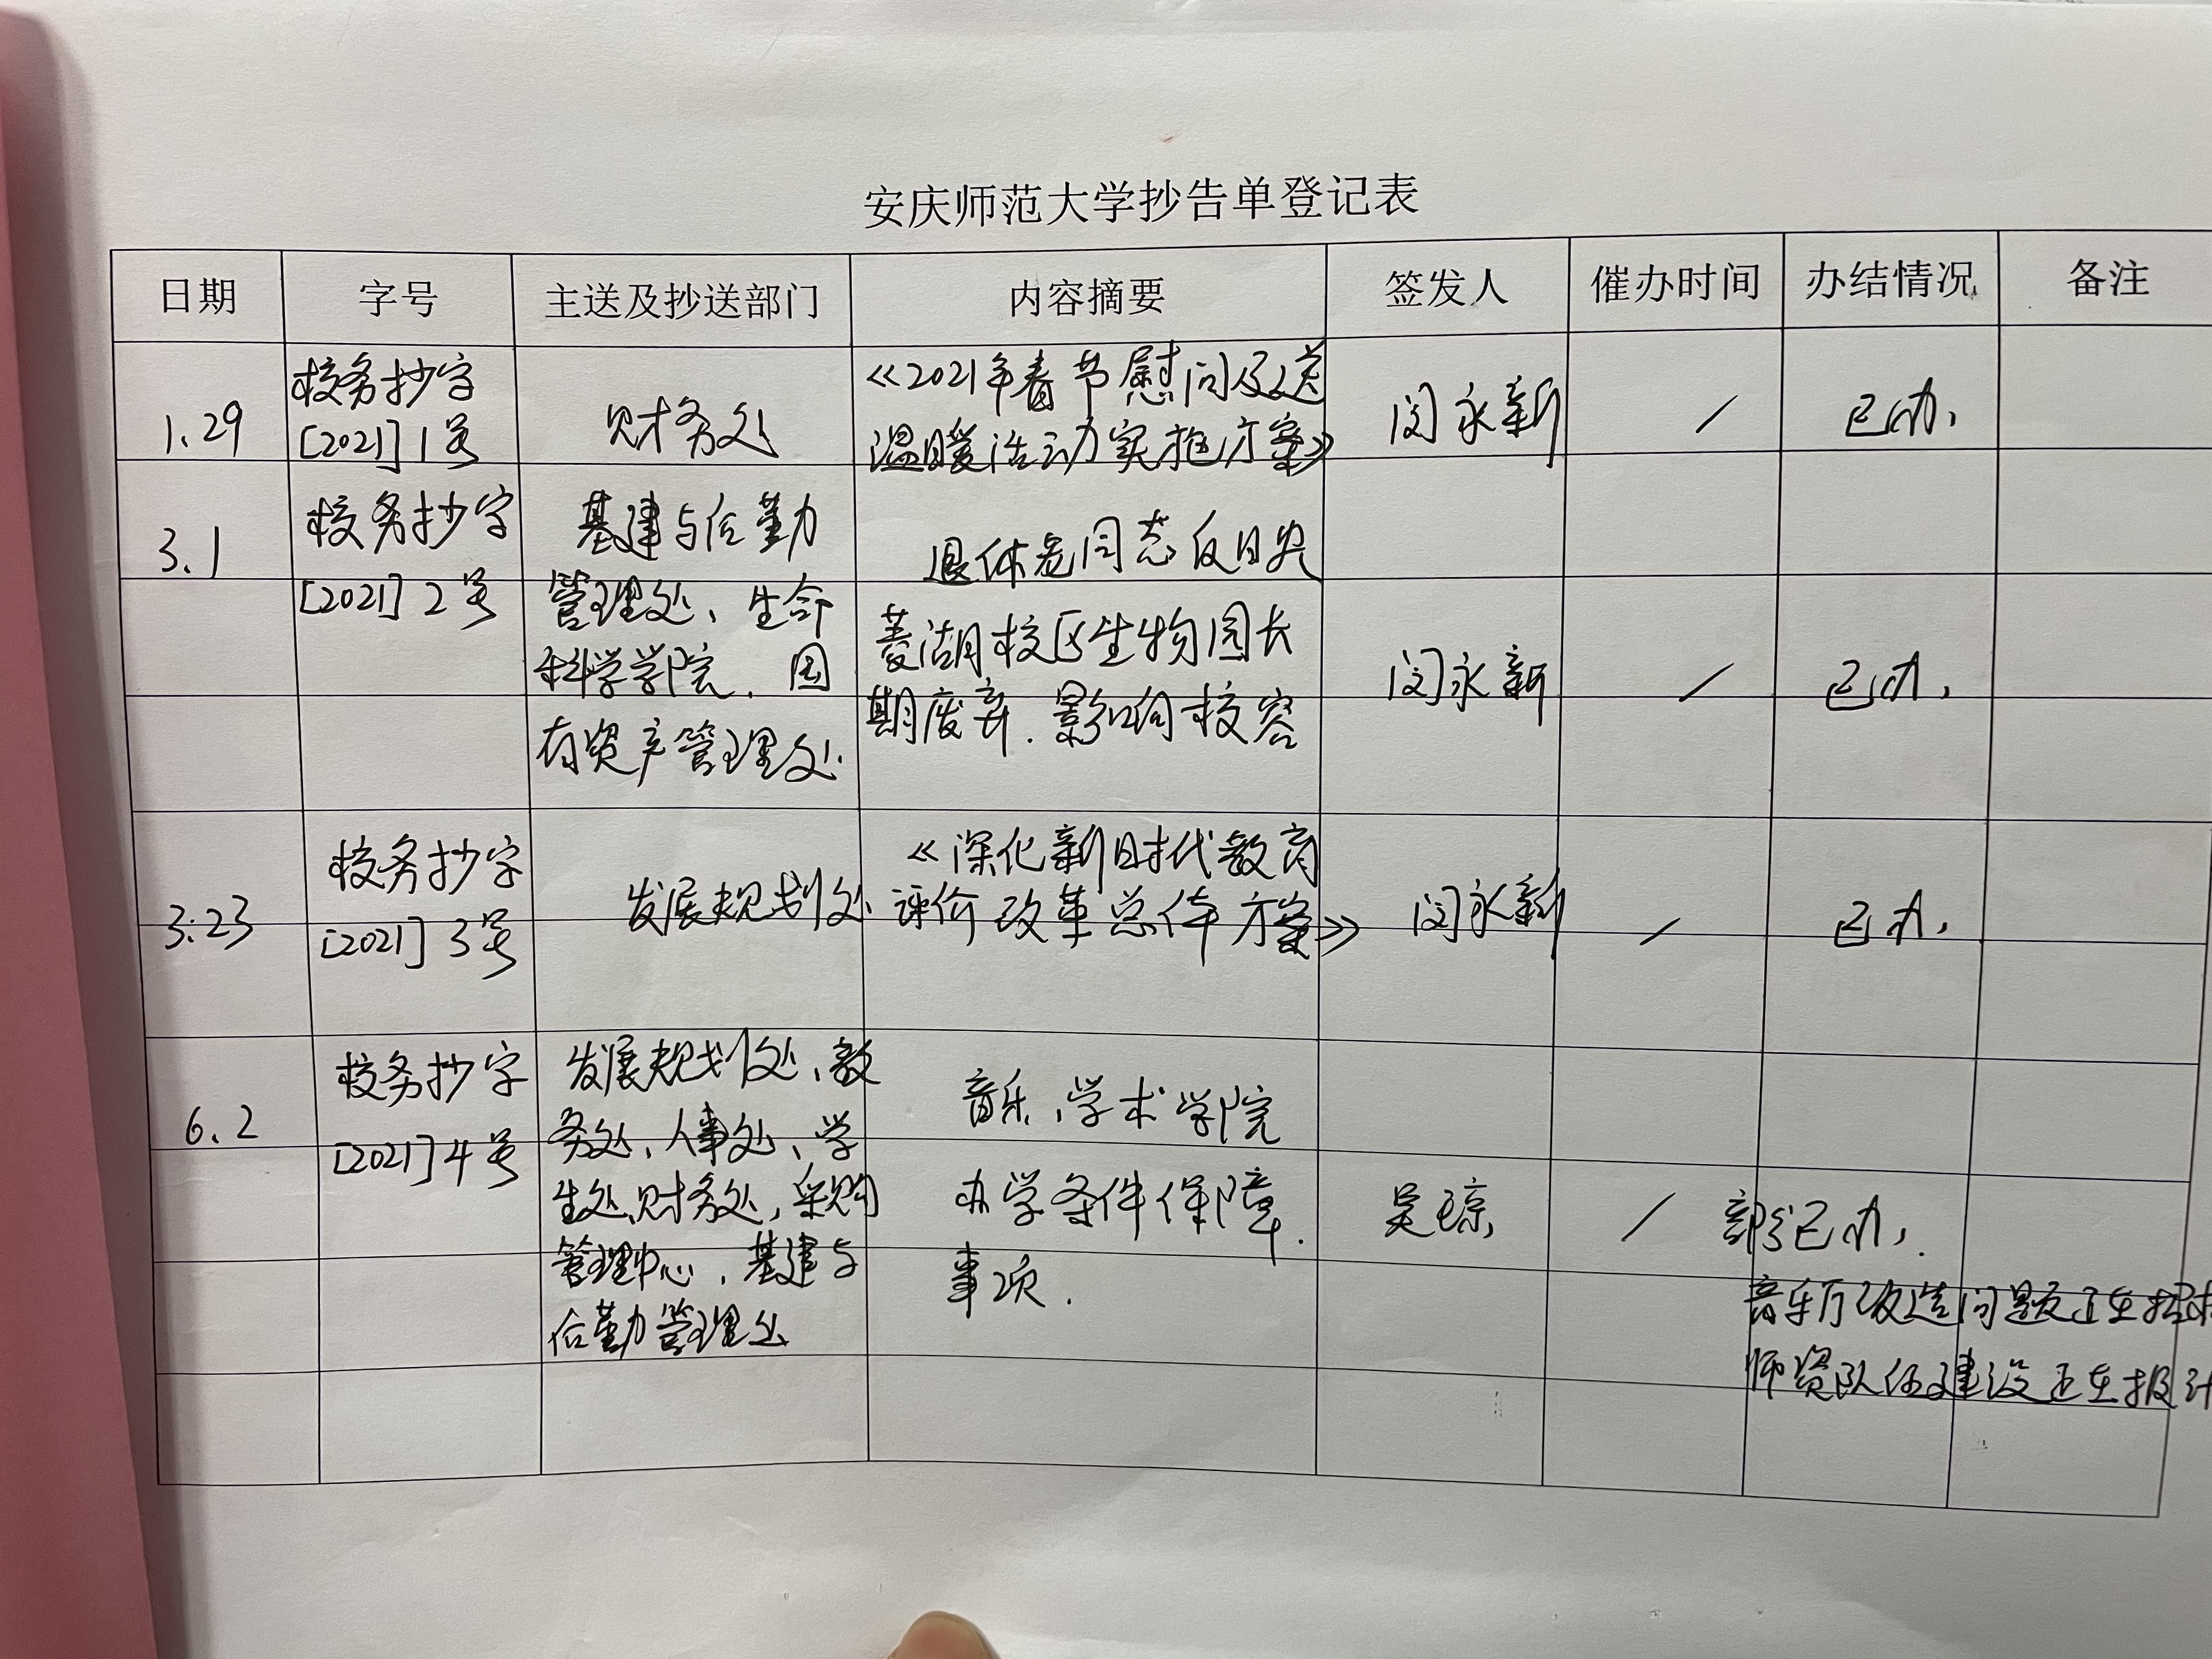 安庆师范大学抄告单登记表
日期 字号 主送及抄送部门 内容摘要 签发人 催办时间 办结情况 备注
1.29
校务抄字
[2021]1号
财务处
《2021年春节慰问及送
温暖活动实施方案》
闵永新
/
已办,
3.1
校务抄字
[2021]2号
基建与后勤
管理处、生命
科学学院、国
有资产管理处
退休老同志反映
菱湖校区生物园长
期废弃.影响校容
闵永新
/
已办,
3.23
校务抄字
[2021]3号
发展规划处
《深化新时代教育
评价改革总体方案》
闵永新
/
已办,
6.2
校务抄字
[2021]4号
发展规划处、教
务处、人事处、学
生处、财务处,采购
管理中心、基建与
后勤管理处
音乐、学术学院
办学条件保障.
事项.
吴琼
/
部分已办,.
音乐厅改造问题正在招标
师资队伍建设正在报计